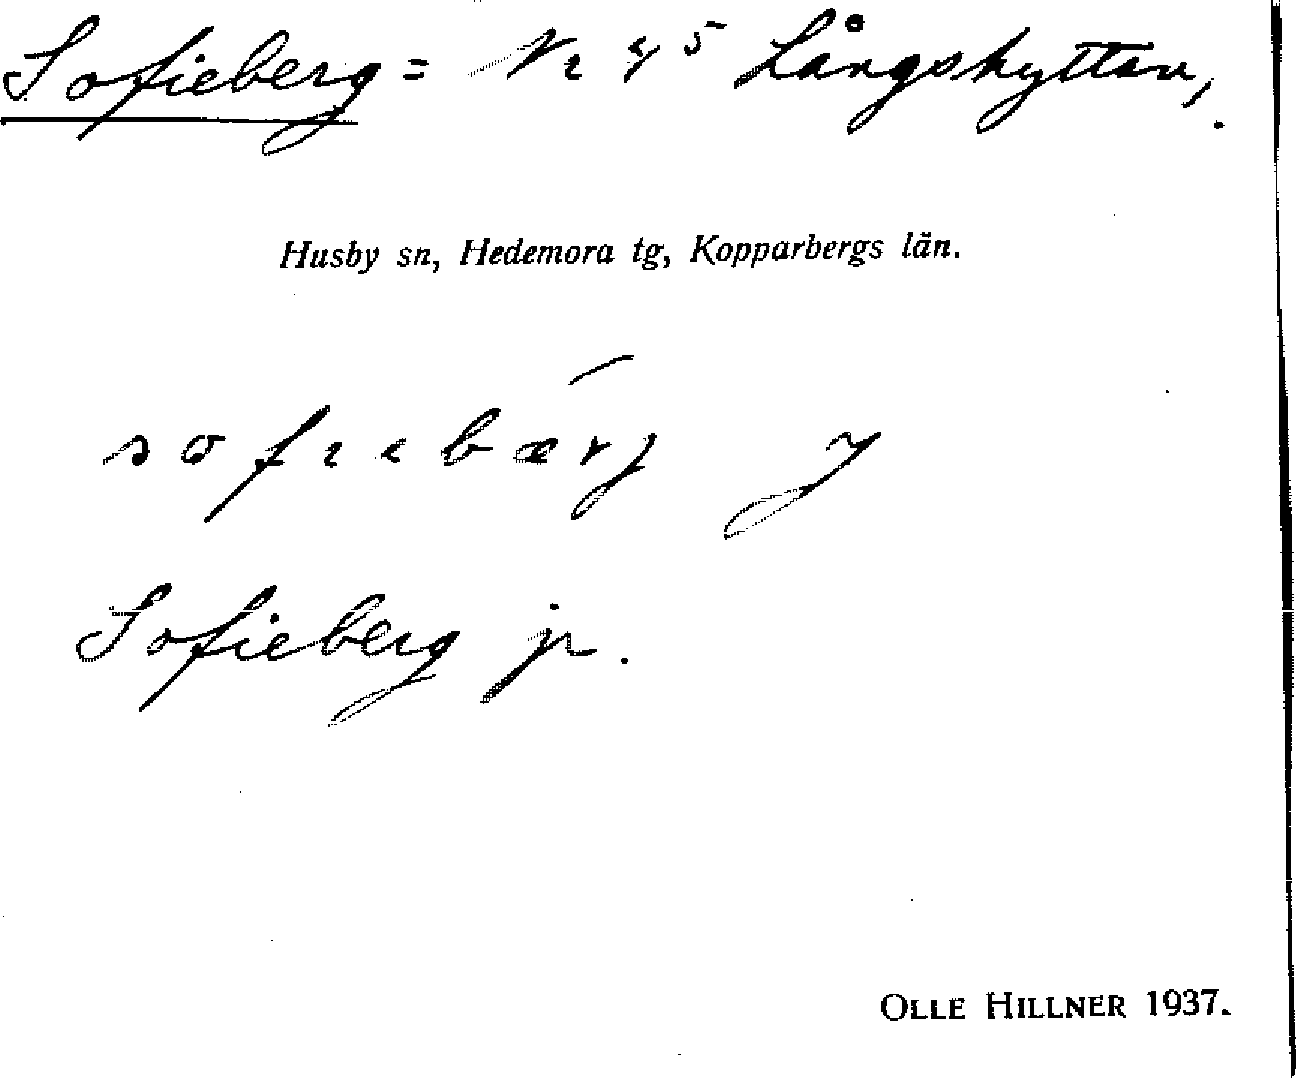 Sofieberg = Nr 45 Långshyttan,.
Husby sn, Hedemora tg, Kopparbergs län.
Sofieberg jr.
OLLE HILLNER 1937.